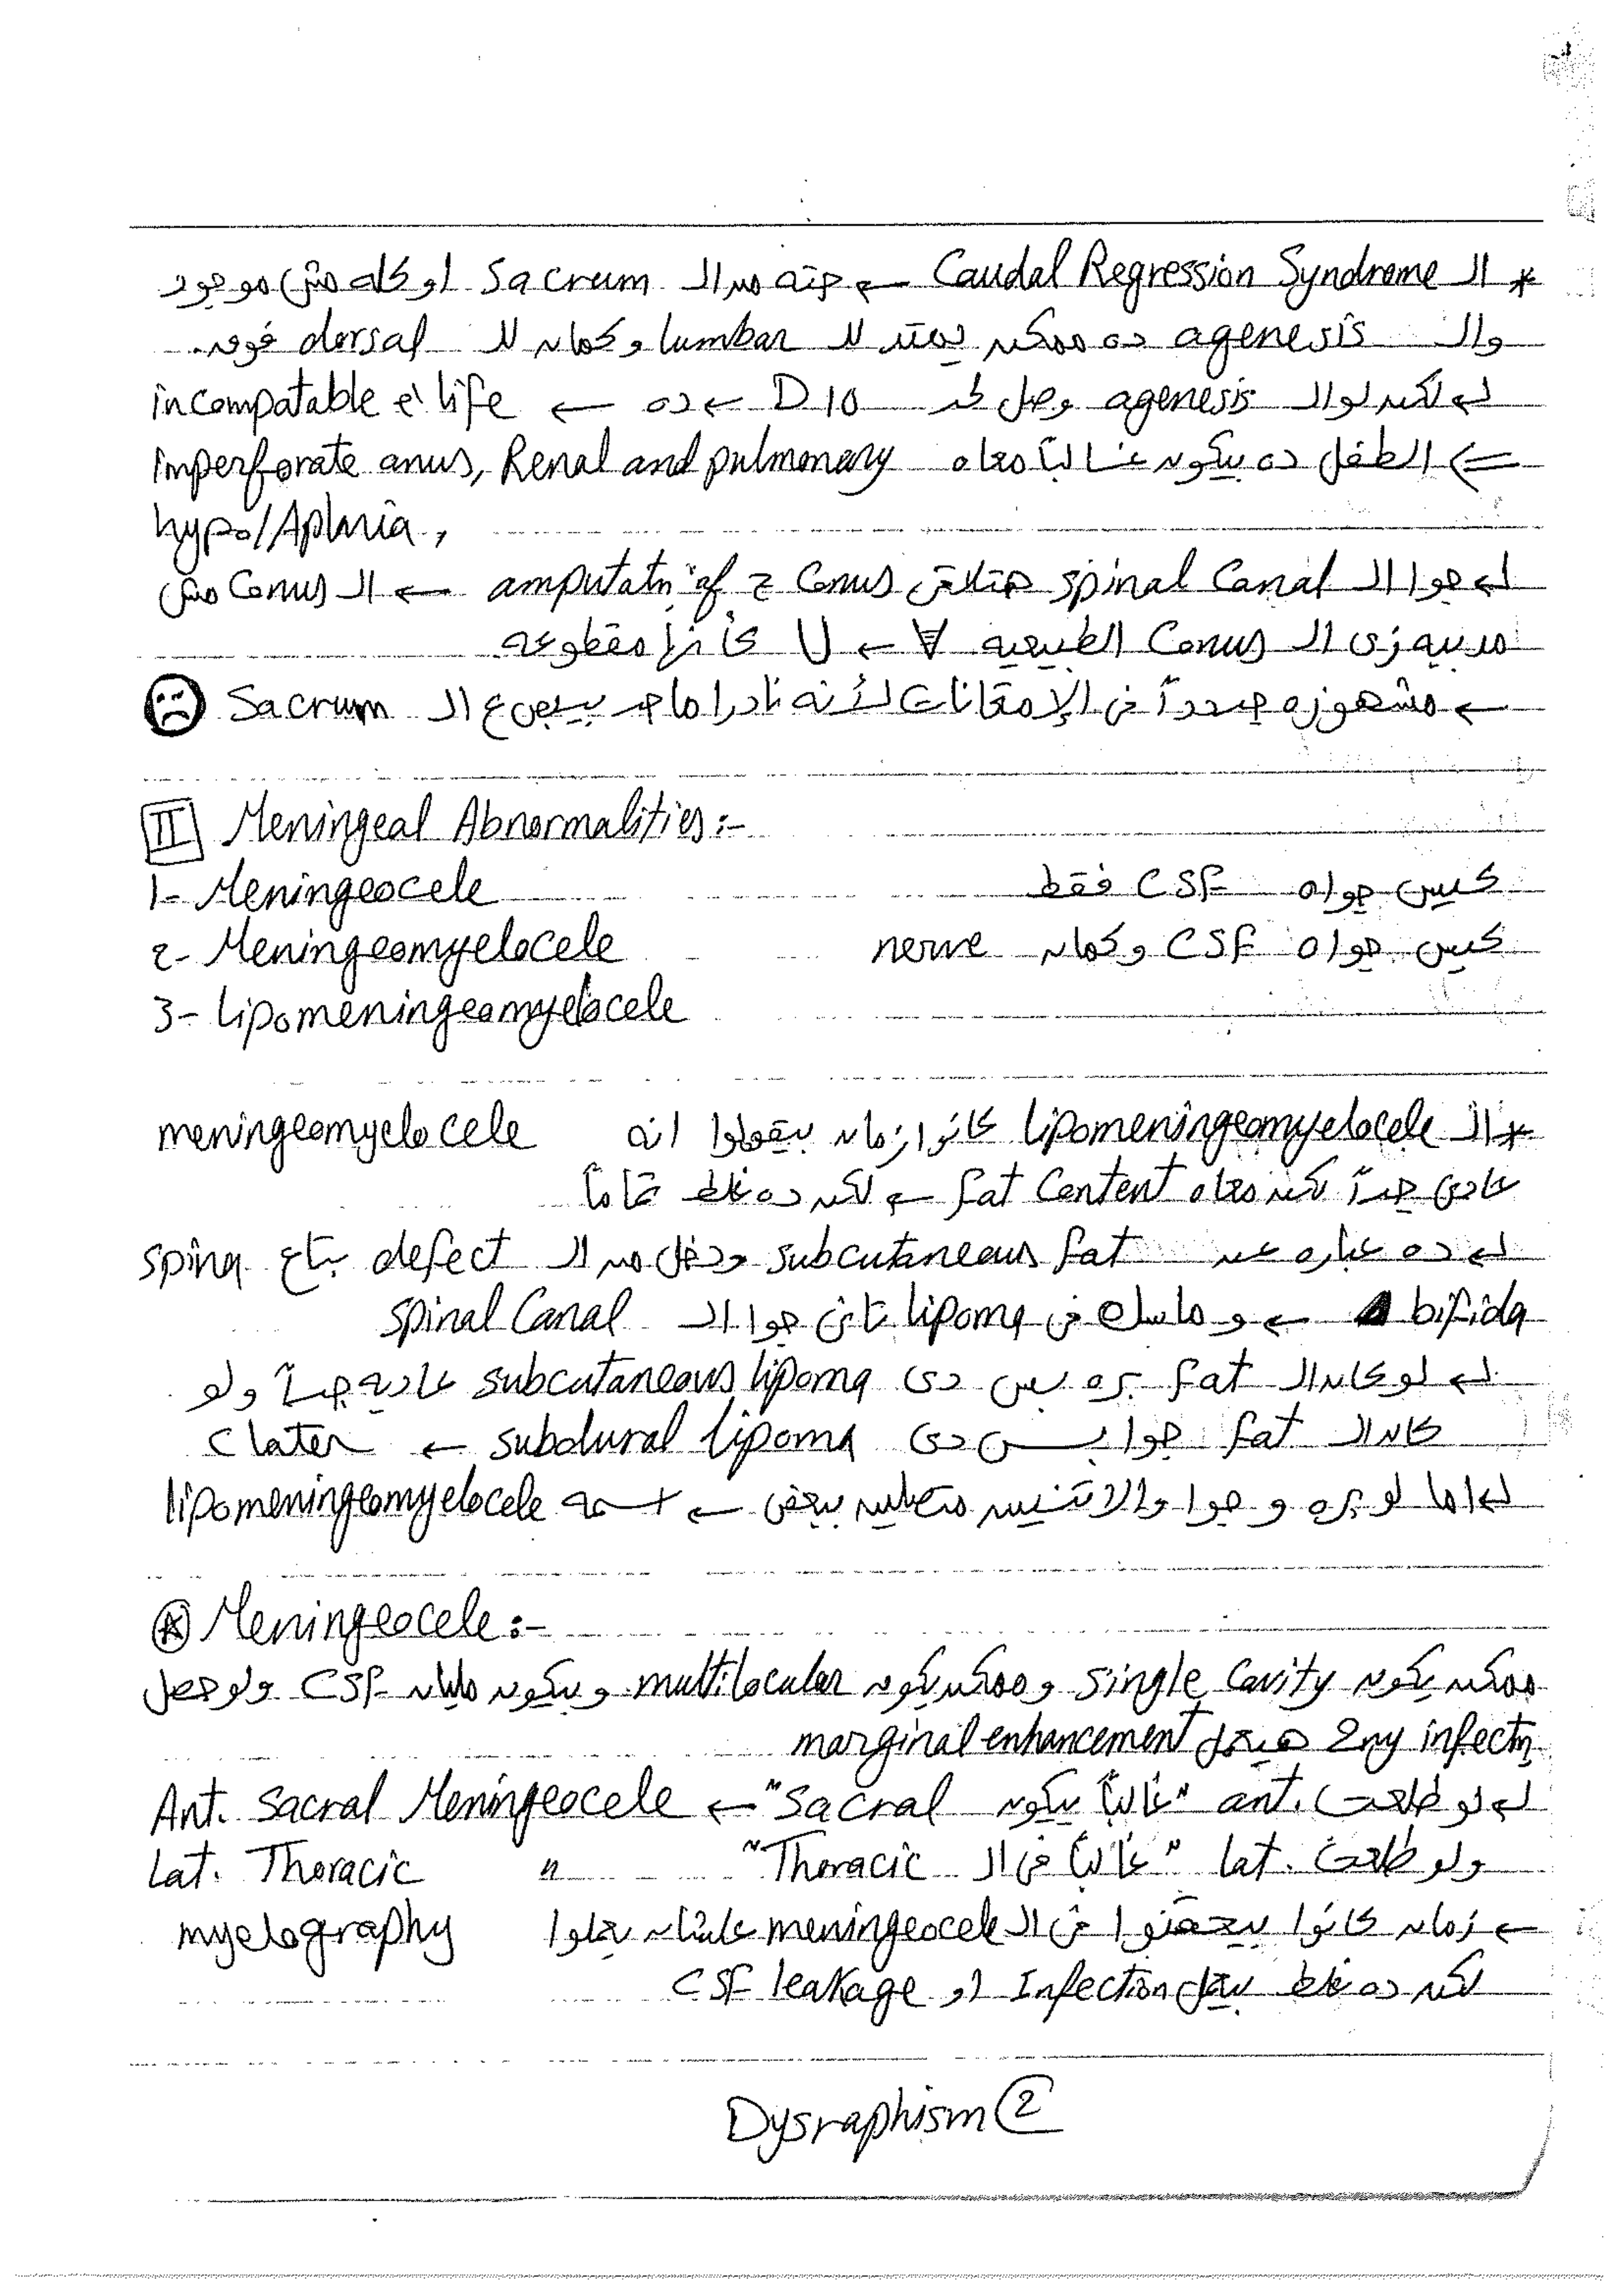 * ال Caudal Regression Syndrome ← حته من ال Sacrum او كله مش موجود
وال agenesis ده ممكن يمتد لل lumbar وكمان لل dorsal فوق..
لكن لو ال agenesis وصل لحد D10 ← ده ← incompatable c̄ life
⇐ الطفل ده بيكون غالباً معاه imperforate anus, Renal and pulmonary
hypo/Aplasia,
جوا ال spinal Canal هتلاقى amputatn of Conus ← ال Conus مش
مدببه زى ال Conus الطبيعيه ∀ ← U كأنها مقطوعه
← مشهوره جدداً فى الإمتحانات لأنه نادرا ما حد بيبص ع ال Sacrum ☹
II Meningeal Abnormalities:-
1- Meningeocele كيس جواه CSF فقط
2- Meningeomyelocele كيس جواه CSF وكمان nerve
3- lipomeningeomyelocele
* ال lipomeningeomyelocele كانوا زمان بيقولوا انه meningeomyelocele
عادى جداً لكن معاه fat Content ← لكن ده غلط تماماً
ده عباره عن subcutaneous fat ودخل من ال defect بتاع spina
bifida ← و ماسك فى lipoma تانى جوا ال spinal Canal
لو كان ال fat بره بس دى subcutaneous lipoma عاديه جداً ولو
كان ال fat جوا بس دى subdural lipoma ← c later
اما لو بره و جوا والاتنين متصلين ببعض ← اسمه lipomeningeomyelocele
* Meningeocele:-
ممكن يكون single Cavity وممكن يكون multilocular وبيكون مليان CSF ولو حصل
2ry infectn هيعمل marginal enhancement
لو طلعت ant. "غالباً بيكون Sacral" ← Ant. Sacral Meningeocele
ولو طلعت lat. "غالباً فى ال Thoracic" Lat. Thoracic "
← زمان كانوا بيحقنوا فى ال meningeocele علشان يعملوا myelography
لكن ده غلط بيعمل Infection او CSF leakage
Dysraphism 2